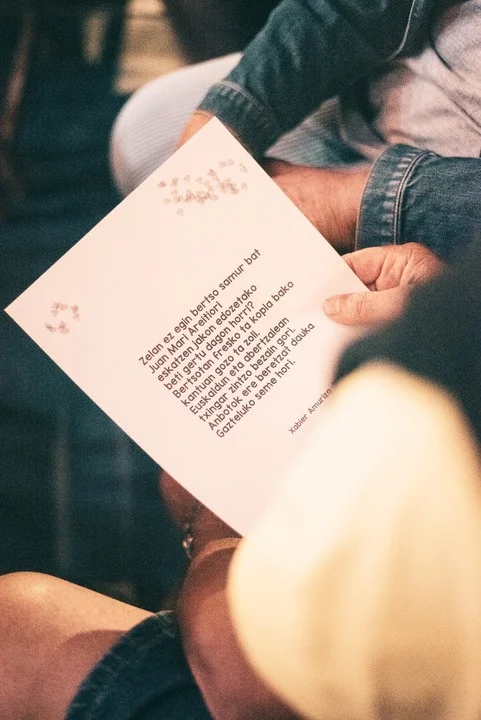 Zelan ez egin bertso samur bat
Juan Mari Areitiori
eskatzen jakon edozetako
beti gertu dagon harri?
Bertsotan fresko ta kopla bako
kantuan gozo ta zoli.
Euskaldun eta abertzalean
txingar zintzo bezain gori.
Anbotok ere beretzat dauka
Gazteluko seme hori.
Xabier Amuriza